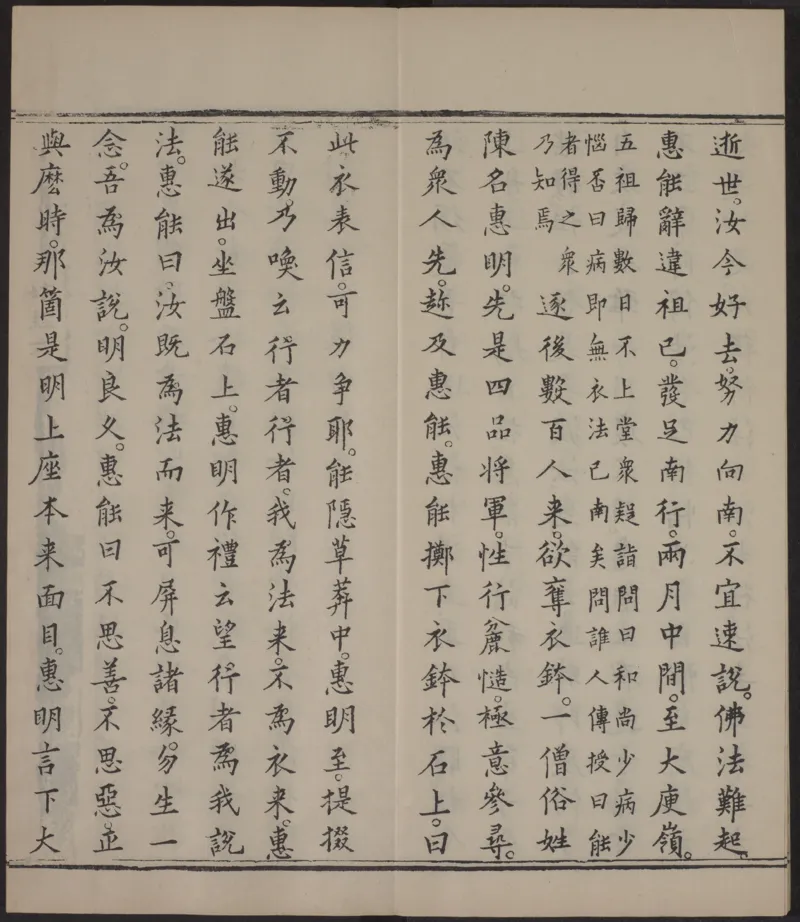 逝世。汝今好去。努力向南。不宜速說。佛法難起。
惠能辭違祖已。發足南行。兩月中間。至大庾嶺。
五祖歸數日不上堂衆疑詣問曰和尚少病少
惱否曰病即無衣法已南矣問誰人傳授曰能
者得之衆
乃知焉
逐後數百人来。欲奪衣鉢。一僧俗姓
陳名惠明。先是四品将軍。性行麁慥。極意參尋。
為衆人先。趂及惠能。惠能擲下衣鉢於石上。曰
此衣表信。可力争耶。能隱草莽中。惠明至。提掇
不動。乃喚云行者行者。我為法来。不為衣来。惠
能遂出。坐盤石上。惠明作禮云望行者為我說
法。惠能曰。汝既為法而来。可屏息諸緣。勿生一
念。吾為汝說。明良久。惠能曰不思善。不思惡。正
與麽時。那箇是明上座本来面目。惠明言下大